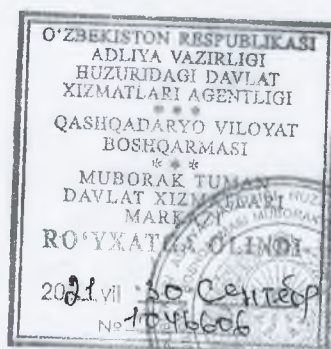 O‘ZBEKISTON RESPUBLIKASI
ADLIYA VAZIRLIGI
HUZURIDAGI DAVLAT
XIZMATLARI AGENTLIGI
* * *
QASHQADARYO VILOYAT
BOSHQARMASI
* * *
MUBORAK TUMAN
DAVLAT XIZMATLARI
MARKAZI
RO‘YXATGA OLINDI
2021 yil 30 Сентябр
№ 1046606